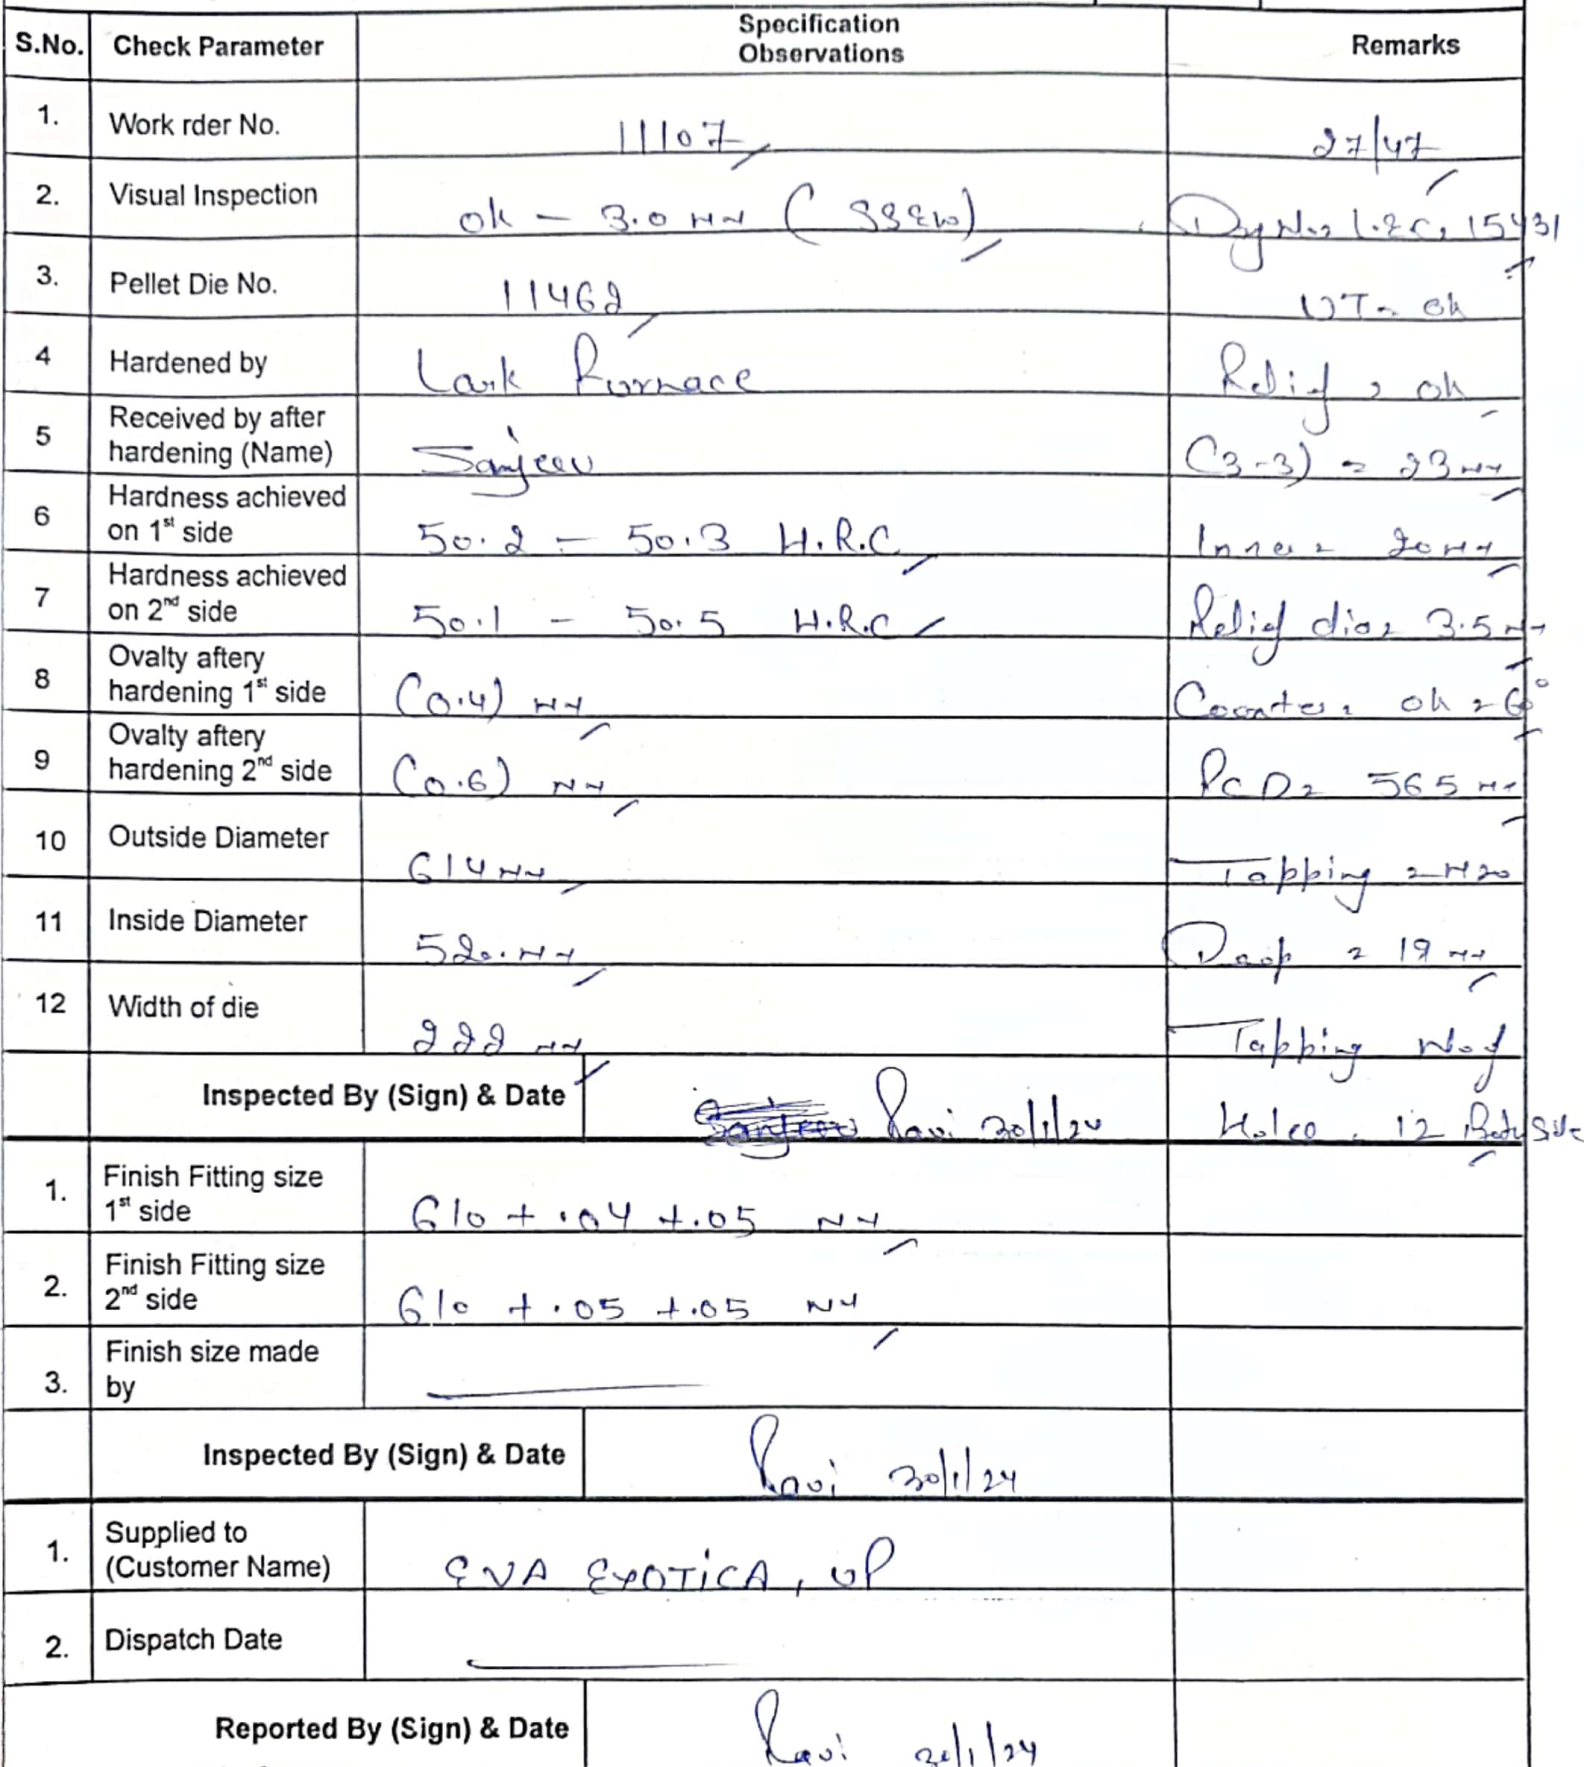 S.No. Check Parameter Specification Observations Remarks
1. Work rder No. 11107 27/47
2. Visual Inspection ok - 3.0 mm (SSEW) Drg No. 15431
3. Pellet Die No. 11462 UT = ok
4 Hardened by Lark Furnace Relief = ok
5 Received by after hardening (Name) Sanjeev (3-3) = 23 mm
6 Hardness achieved on 1st side 50.2 - 50.3 H.R.C Inner = 20 mm
7 Hardness achieved on 2nd side 50.1 - 50.5 H.R.C Relief dia = 3.5 mm
8 Ovalty aftery hardening 1st side (0.4) mm Counter = ok = 60°
9 Ovalty aftery hardening 2nd side (0.6) mm PCD = 565 mm
10 Outside Diameter 614 mm Tapping = M20
11 Inside Diameter 520. mm Deep = 19 mm
12 Width of die 222 mm Tapping No of
Inspected By (Sign) & Date Ravi 30/1/24 Holes = 12 Both Side
1. Finish Fitting size 1st side 610 + .04 +.05 mm
2. Finish Fitting size 2nd side 610 + .05 +.05 mm
3. Finish size made by
Inspected By (Sign) & Date Ravi 30/1/24
1. Supplied to (Customer Name) EVA EXOTICA, UP
2. Dispatch Date
Reported By (Sign) & Date Ravi 30/1/24